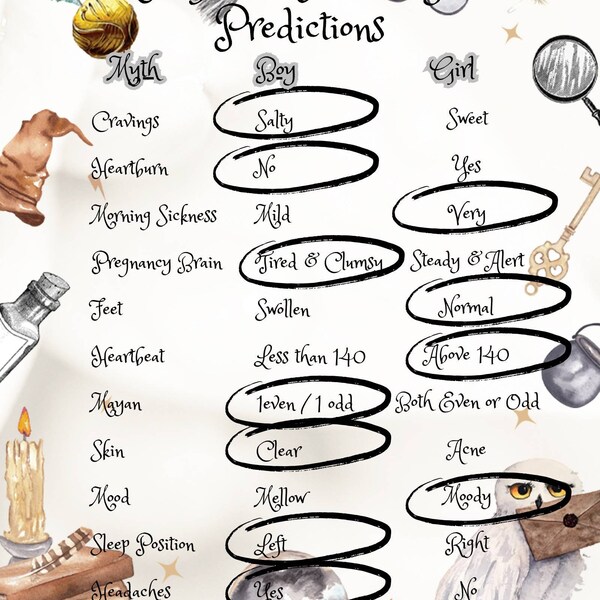 Predictions
Myth Boy Girl
Cravings Salty Sweet
Heartburn No Yes
Morning Sickness Mild Very
Pregnancy Brain Tired & Clumsy Steady & Alert
Feet Swollen Normal
Heartbeat Less than 140 Above 140
Mayan 1even / 1 odd Both Even or Odd
Skin Clear Acne
Mood Mellow Moody
Sleep Position Left Right
Headaches Yes No